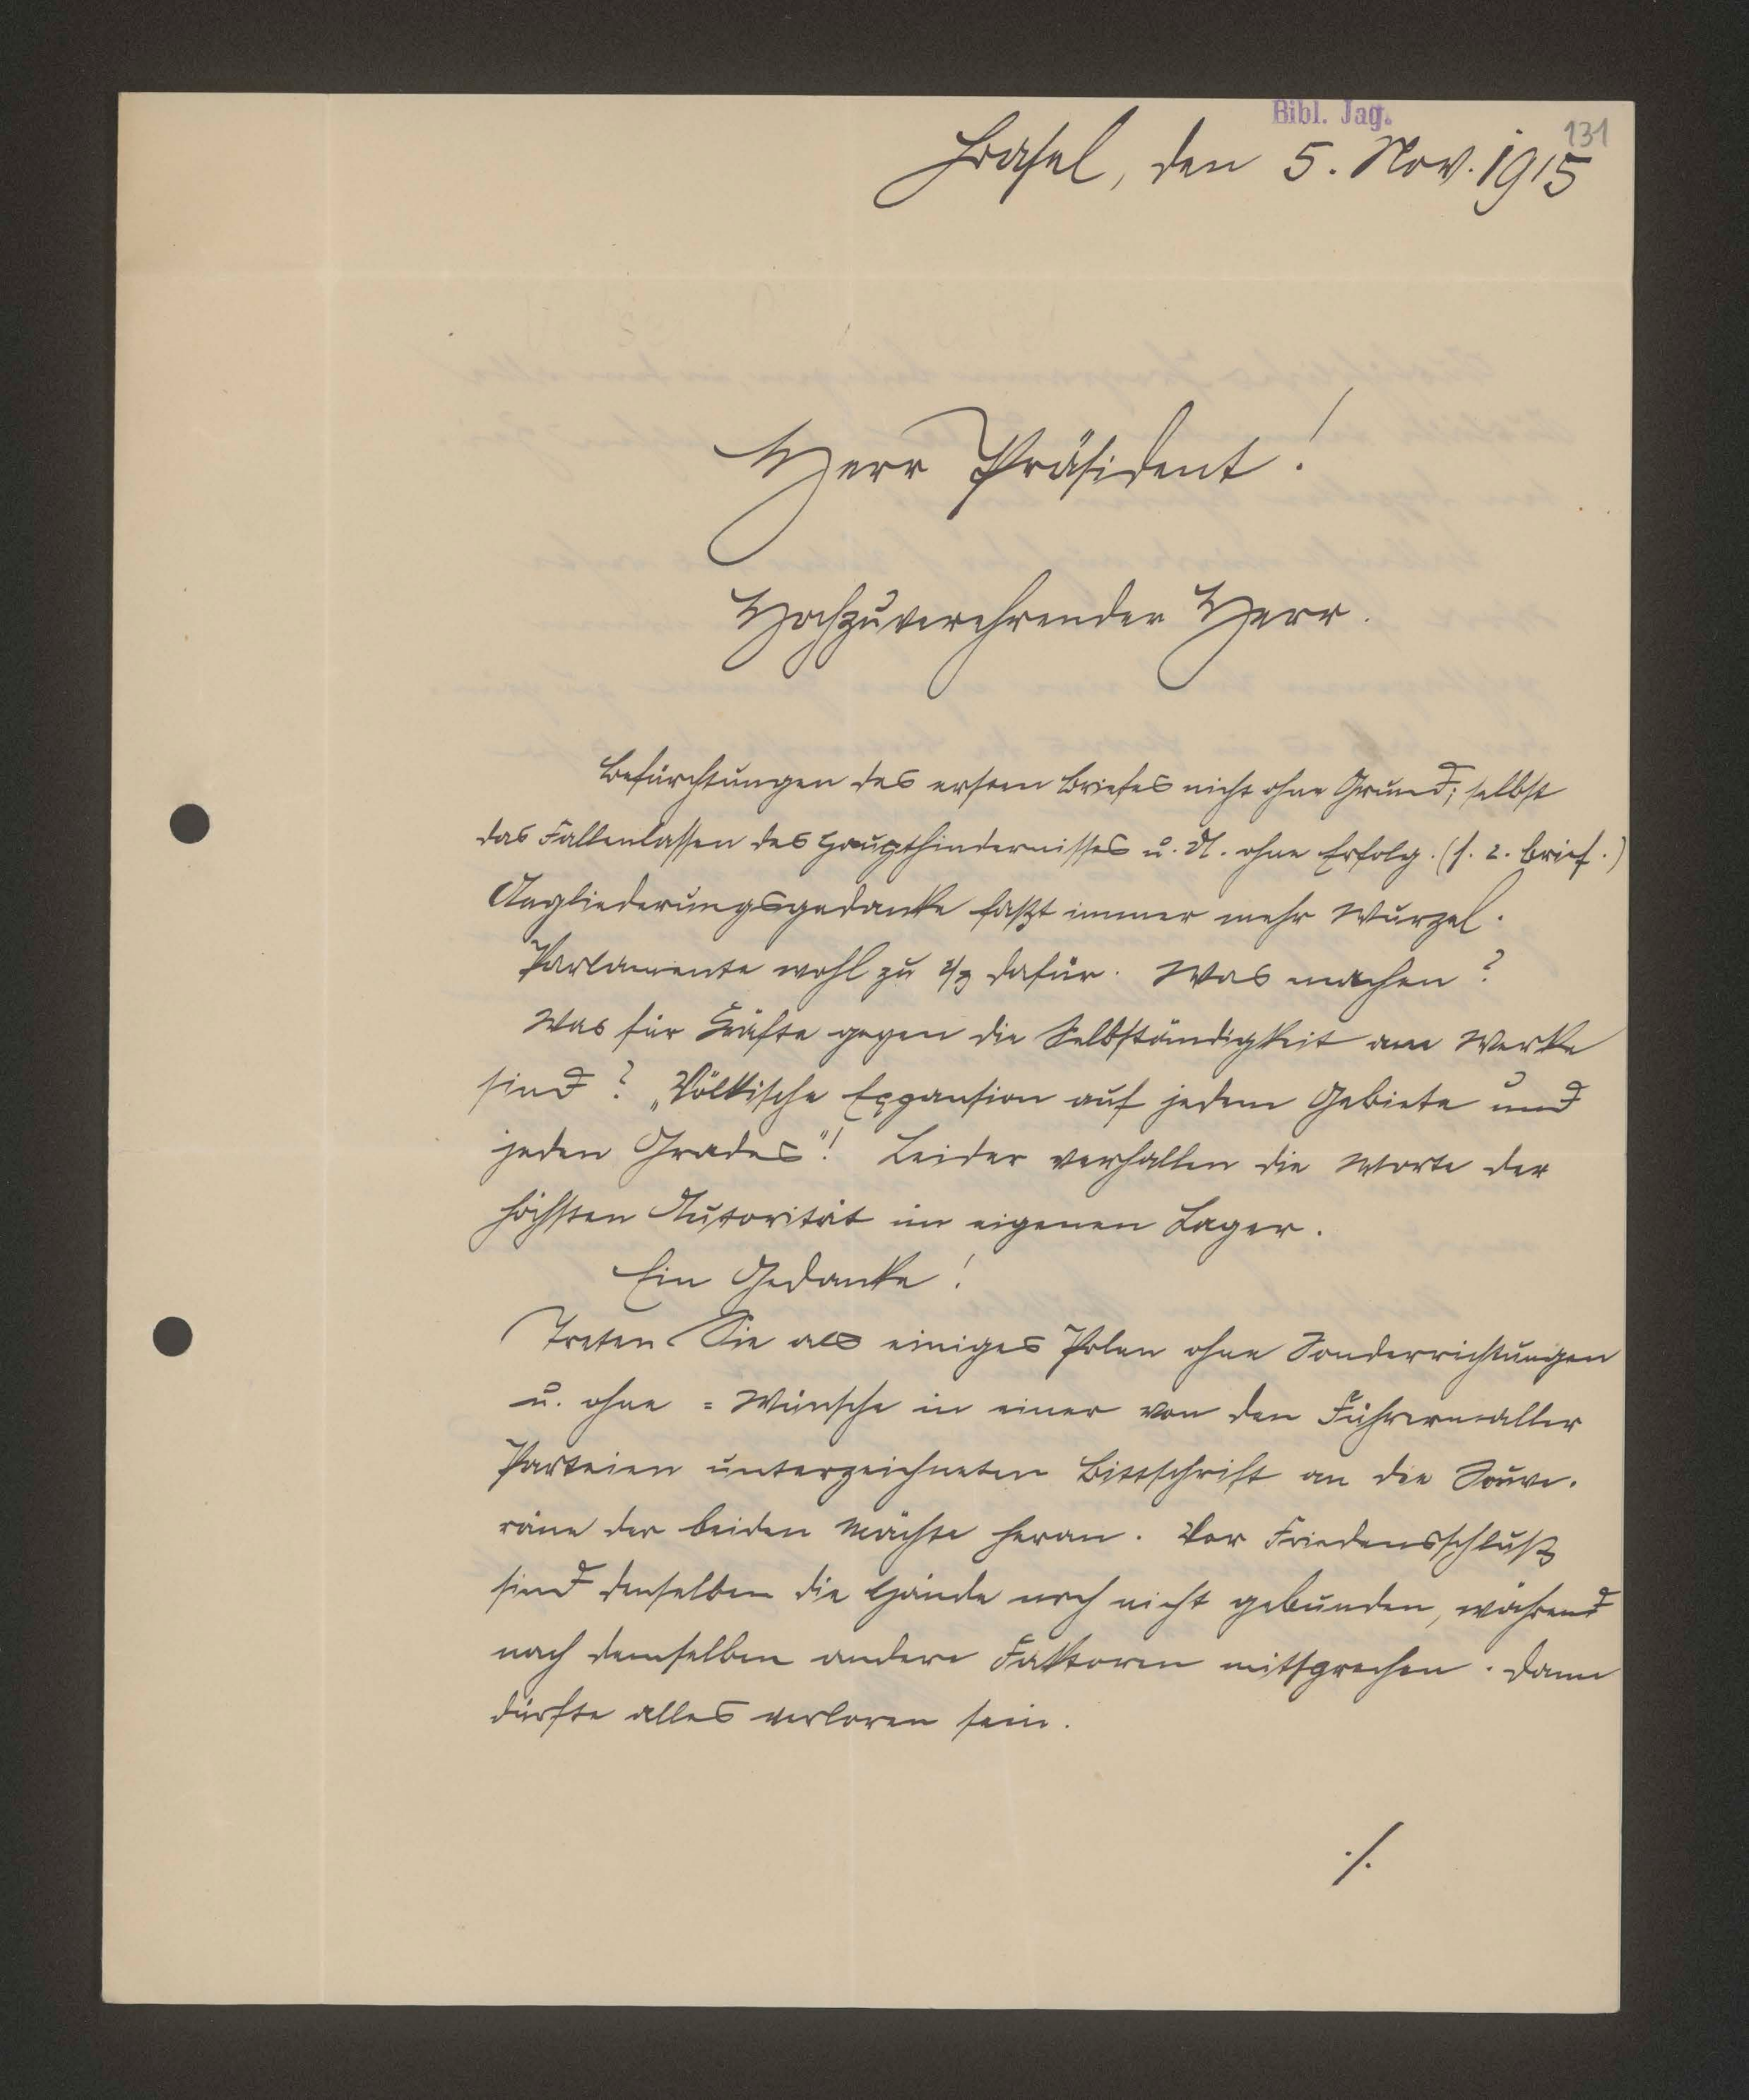 Bibl. Jag.
131
Basel, den 5. Nov. 1915
Herr Präsident!
Hochzuverehrender Herr.
Befürchtungen des ersten Briefes nicht ohne Grund; selbst
das Fallenlassen des Haupthindernisses u. U. ohne Erfolg. (s. 2. Brief.)
Angliederungsgedanke faßt immer mehr Wurzel.
Parlamente wohl zu 2/3 dafür. Was machen?
Was für Kräfte gegen die Selbständigkeit am Werke
sind? „Völkische Expansion auf jedem Gebiete und
jeden Grades"! Leider verhallen die Worte der
höchsten Autorität im eigenen Lager.
Ein Gedanke!
Treten Sie als einiges Polen ohne Sonderrichtungen
u. ohne = Wünsche in einer von den Führern aller
Parteien unterzeichneten Bittschrift an die Souve-
räne der beiden Mächte heran. Vor Friedensschluß
sind denselben die Hände noch nicht gebunden, während
nach demselben andere Faktoren mitsprechen. Dann
dürfte alles verloren sein.
./.